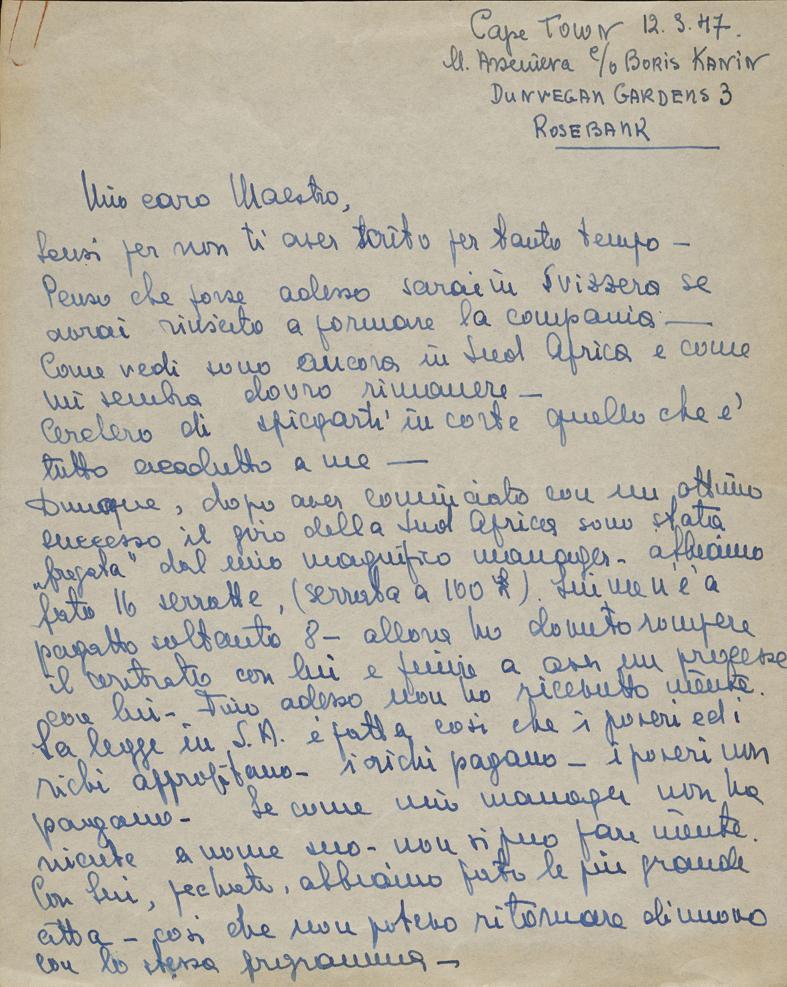 Cape Town 12.3.47.
M. Arseniera c/o Boris Kanin
Dunvegan Gardens 3
Rosebank
Mio caro Maestro,
Scusi per non ti aver scrito per tanto tempo —
Penso che forse adesso sarai in Svizzera se
avrai riuscito a formare la compania —
Come vedi sono ancora in Sud Africa e come
mi sembra dovro rimanere —
Cerclero di spiegarti in corte quello che e'
tutto accadutto a me —
Dunque, dopo aver cominciato con un ottimo
successo il giro della Sud Africa sono stata
„fregata" dal mio magnifico manager - abbiamo
fato 16 serratte, (serrata a 100 ). Lui non e' a
pagatto soltanto 8 - allora ho dovuto rompere
il contrato con lui e a un processo
con lui - Fino adesso non ho ricevutto niente.
La legge in S.A. é fatta cosi che i poveri ed i
richi approfitano - i richi pagano - i poveri non
pangano - Se come mio manager non ha
niente a nome suo - non si puo fare niente.
Con lui, pechato, abbiamo fato le piu grande
citta - cosi che non potevo ritornare di nuovo
con lo stessa programma —